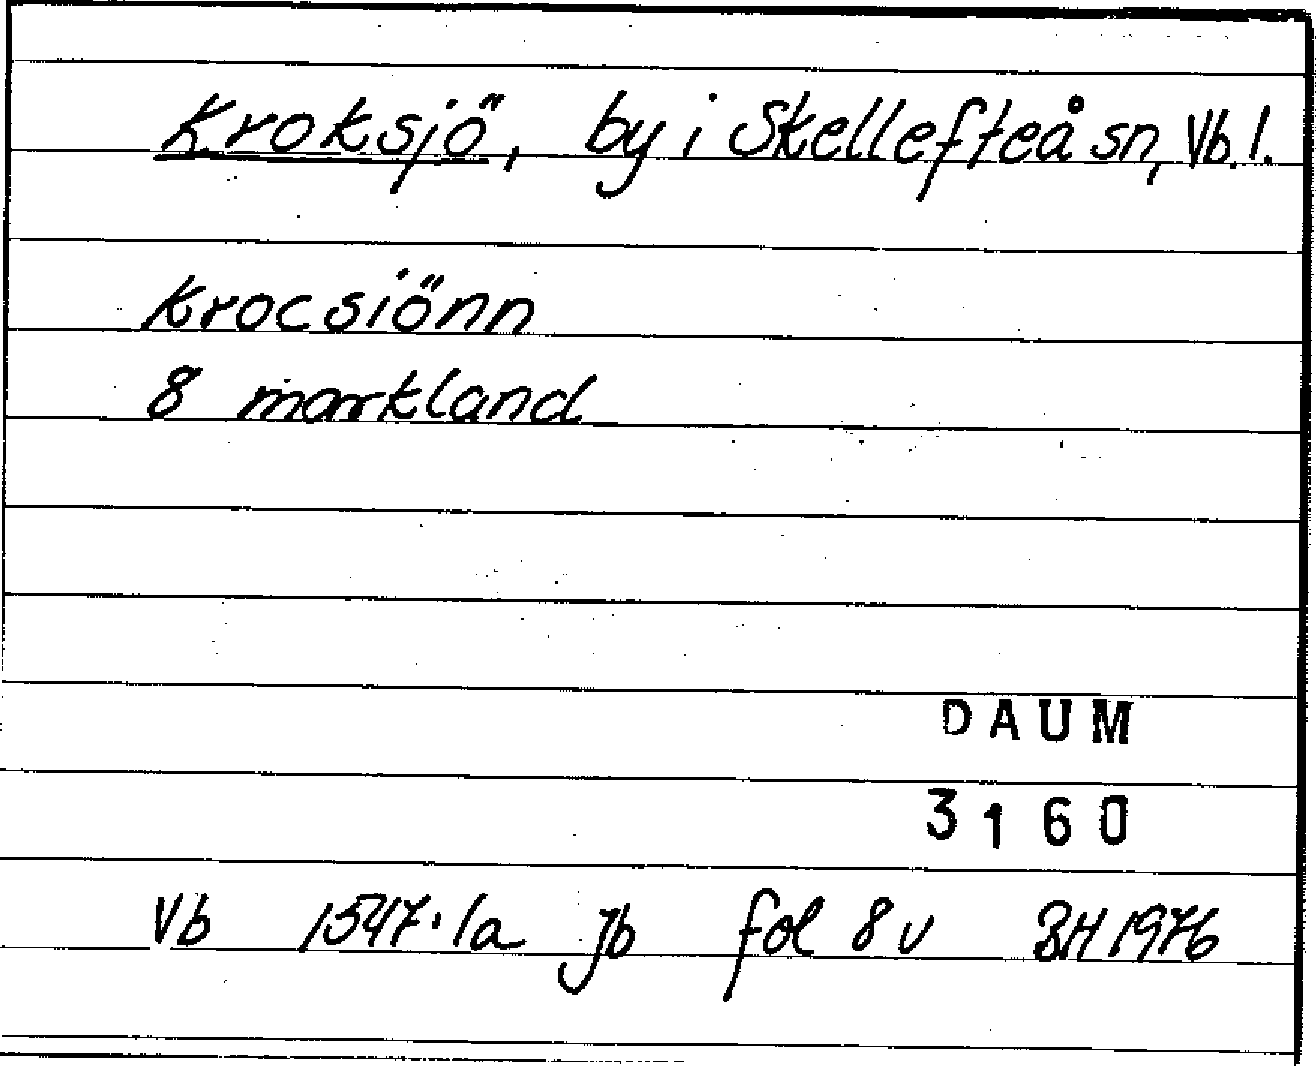 Kroksjö, by i Skellefteå sn, Vb. l.
Krocsiönn
8 markland
DAUM
3160
Vb 1547:1a Jb fol 8v BH 1976